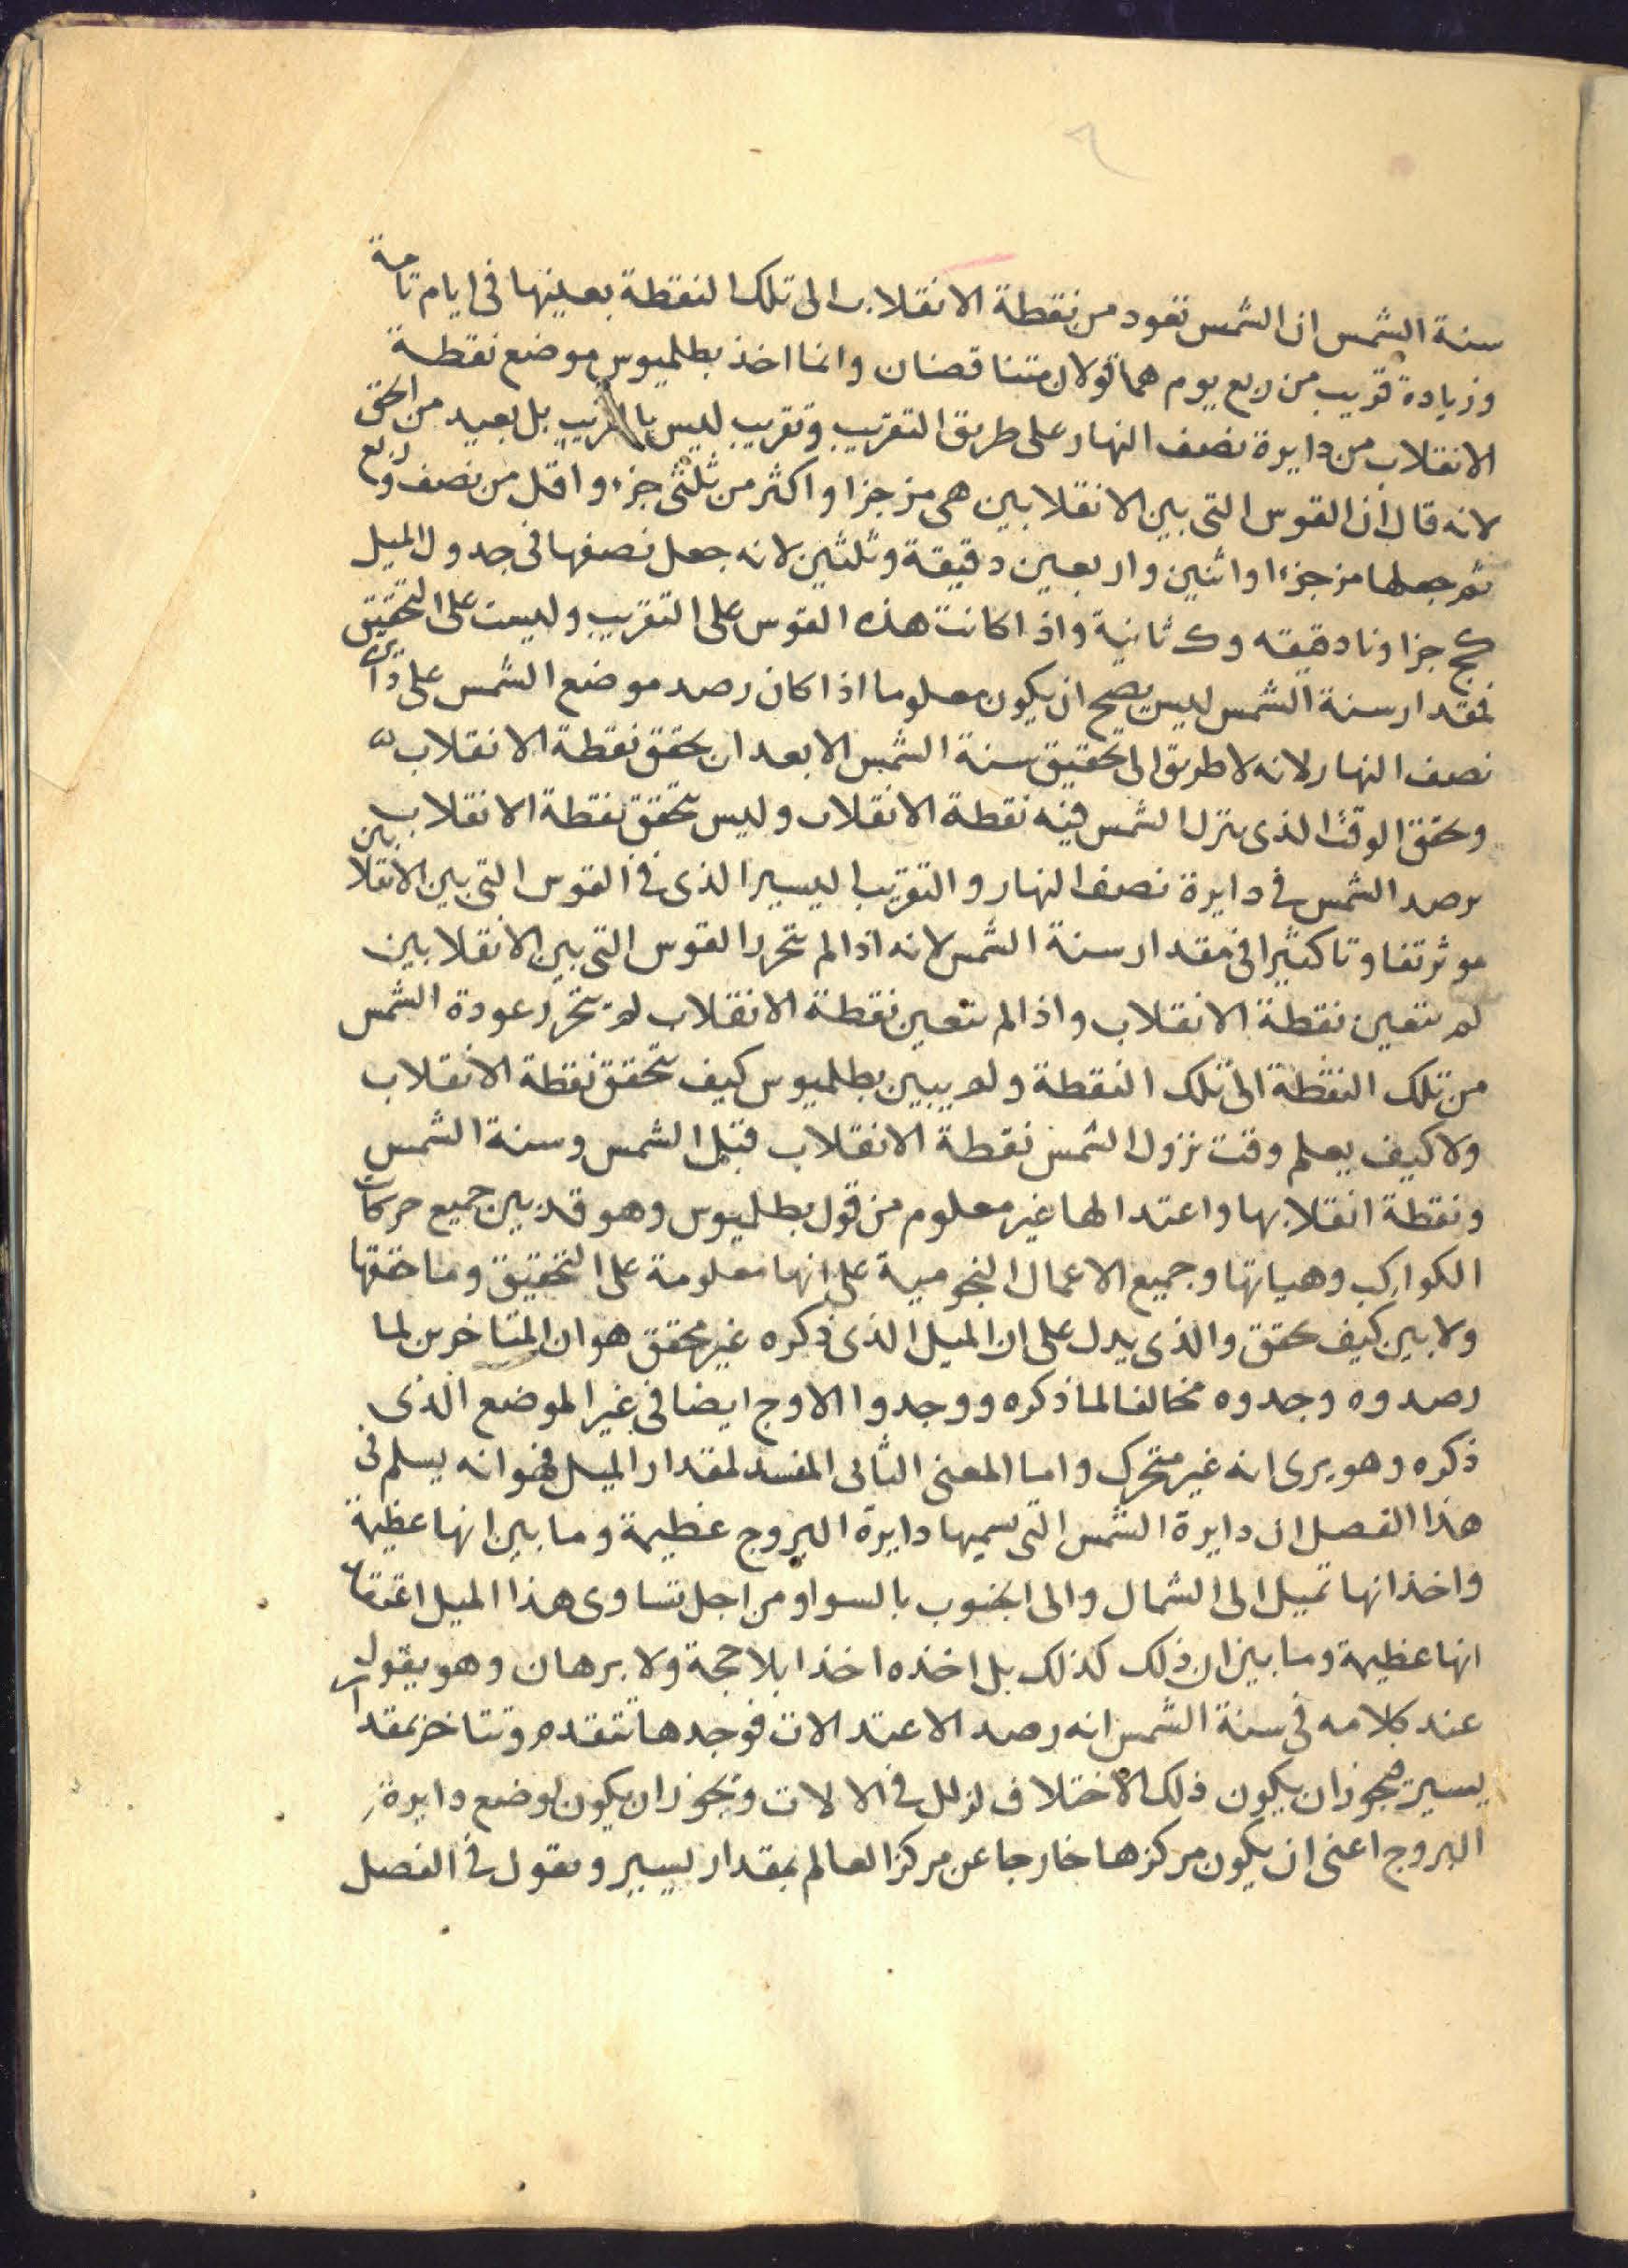 سنة الشمس ان الشمس تعود من نقطة الانقلاب الى تلك النقطة بعينها فى ايام تامة
وزيادة قريب من ربع يوم هما قولان متناقضان وانما اخذ بطلميوس موضع نقطة
الانقلاب من دايرة نصف النهار على طريق التقريب وتقريب ليس بالقريب بل بعيد من الحق
لانه قال ان القوس التى بين الانقلابين هى مز جزا واكثر من ثلثى جزء واقل من نصف وربع
ثم جعلها مز جزءا واثنين واربعين دقيقة وثلثين لانه جعل نصفها فى جدول الميل
كج جزا ونا دقيقه وك ثانية واذا كانت هذه القوس على التقريب وليست على التحقيق
فمقدار سنة الشمس ليس يصح ان يكون معلوما اذا كان رصد موضع الشمس على دايرة
نصف النهار لانه لا طريق الى تحقيق سنة الشمس الا بعد ان يحقق نقطة الانقلاب
ويحقق الوقت الذى ينزل الشمس فيه نقطة الانقلاب وليس يتحقق نقطة الانقلاب
برصد الشمس فى دايرة نصف النهار والتقريب اليسير الذى فى القوس التى بين الانقلابين
موثر تفاوتا كثيرا فى مقدار سنة الشمس لانه اذا لم يتحرر القوس التى بين الانقلابين
لم يتعين نقطة الانقلاب واذا لم يتعين نقطة الانقلاب لم يتحرر عودة الشمس
من تلك النقطة الى تلك النقطة ولم يبين بطلميوس كيف يتحقق نقطة الانقلاب
ولا كيف يعلم وقت نزول الشمس نقطة الانقلاب فميل الشمس وسنة الشمس
ونقطة انقلابها واعتدالها غير معلوم من قول بطلميوس وهو قد بين جميع حركات
الكواكب وهياتها وجميع الاعمال النجومية على انها معلومة على التحقيق وما حققها
ولا بين كيف يحقق والذى يدل على ان الميل الذى ذكره غير محقق هو ان المتاخرين لما
رصدوه وجدوه مخالفا لما ذكره ووجدوا الاوج ايضا فى غير الموضع الذى
ذكره وهو يرى انه غير متحرك واما المعنى الثانى المفسد لمقدار الميل فهو انه يسلم فى
هذا الفصل ان دايرة الشمس التى يسميها دايرة البروج عظيمة وما بين انها عظيمة
واخذ انها تميل الى الشمال والى الجنوب بالسوا ومن اجل تساوى هذا الميل اعتقد
انها عظيمة وما بين ان ذلك كذلك بل اخذه اخذا بلا حجة ولا برهان وهو يقول
عند كلامه فى سنة الشمس انه رصد الاعتدالات فوجدها تتقدم وتتاخر بمقدار
يسير فيجوز ان يكون ذلك الاختلاف لزلل فى الالات ويجوز ان يكون لوضع دايرة
البروج اعنى ان يكون مركزها خارجا عن مركز العالم بمقدار يسير ويقول فى الفصل